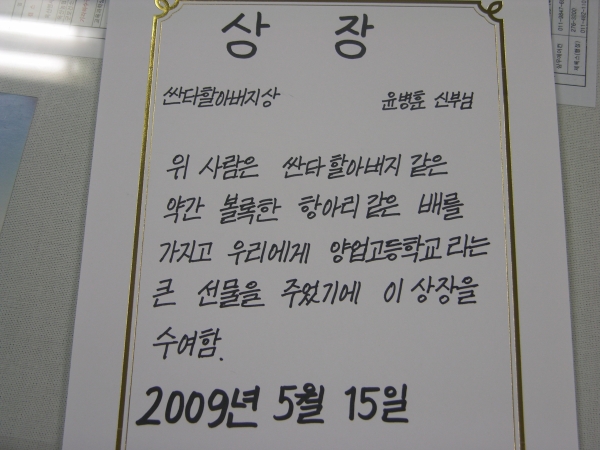 상 장
싼타할아버지상 윤병훈 신부님
위 사람은 싼타할아버지 같은
약간 볼록한 항아리같은 배를
가지고 우리에게 양업고등학교라는
큰 선물을 주었기에 이 상장을
수여함.
2009년 5월 15일